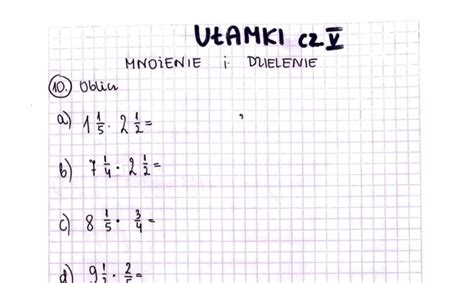 UŁAMKI cz V
MNOŻENIE i DZIELENIE
10. Oblicz
a) 1 1/5 · 2 1/2 =
b) 7 1/4 · 2 1/2 =
c) 8 1/5 · 3/4 =
d) 9 1/2 · 2/5 =